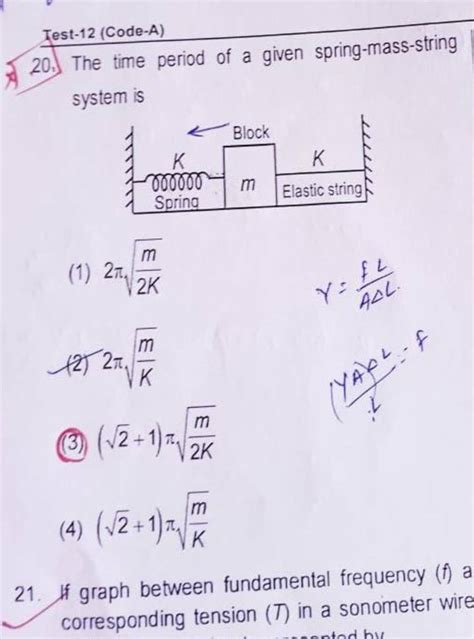 Test-12 (Code-A)
20. The time period of a given spring-mass-string
system is
Block
K
K
m
Spring
Elastic string
(1) 2π√(m/2K)
(2) 2π√(m/K)
(3) (√2+1)π√(m/2K)
(4) (√2+1)π√(m/K)
Y = fL/AΔL
(YA)ΔL/L = f
21. If graph between fundamental frequency (f) a
corresponding tension (T) in a sonometer wire
by